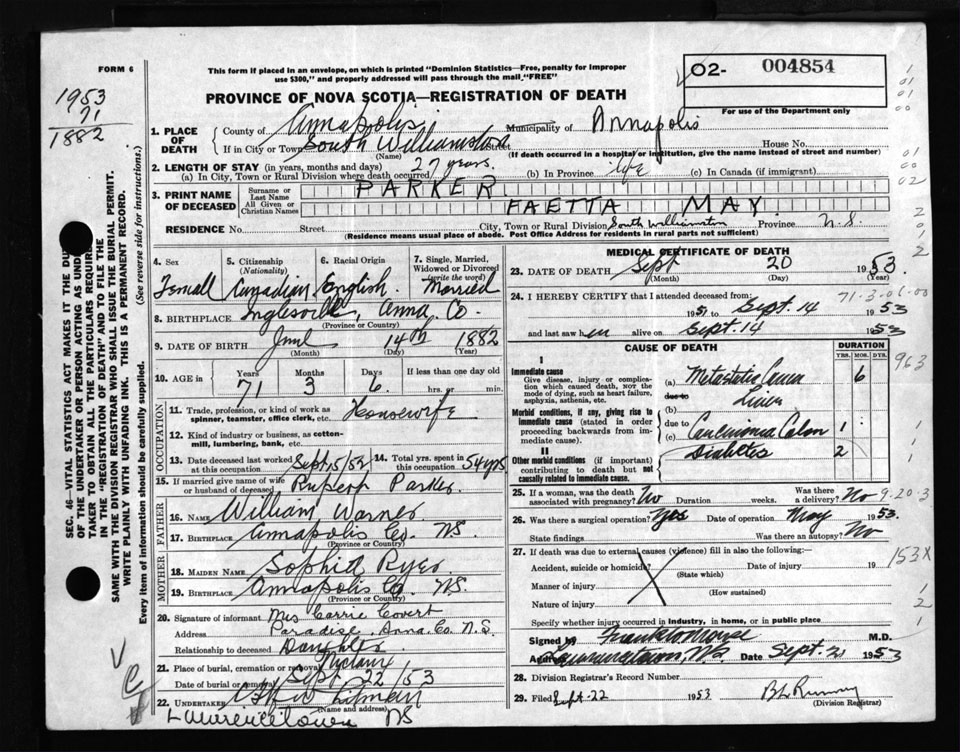 FORM 6
This form if placed in an envelope, on which is printed "Dominion Statistics—Free, penalty for improper
use $300," and properly addressed will pass through the mail "FREE"
02- 004854
PROVINCE OF NOVA SCOTIA—REGISTRATION OF DEATH
For use of the Department only
1953
71
1882
1. PLACE OF DEATH County of Annapolis Municipality of Annapolis
If in City or Town South Williamston House No.
(Name) (If death occurred in a hospital or institution, give the name instead of street and number)
2. LENGTH OF STAY (in years, months and days)
(a) In City, Town or Rural Division where death occurred 27 years. (b) In Province life (c) In Canada (if immigrant)
3. PRINT NAME OF DECEASED Surname or Last Name PARKER
All Given or Christian Names FAETTA MAY
RESIDENCE No. Street City, Town or Rural Division South Williamston Province N.S.
(Residence means usual place of abode. Post Office Address for residents in rural parts not sufficient)
SEC. 46—VITAL STATISTICS ACT MAKES IT THE DU
OF THE UNDERTAKER OR PERSON ACTING AS UNDE
TAKER TO OBTAIN ALL THE PARTICULARS REQUIRE
IN THE "REGISTRATION OF DEATH" AND TO FILE THE
SAME WITH THE DIVISION REGISTRAR WHO SHALL ISSUE THE BURIAL PERMIT.
WRITE PLAINLY WITH UNFADING INK. THIS IS A PERMANENT RECORD.
Every item of information should be carefully supplied. (See reverse side for instructions.)
4. Sex 5. Citizenship (Nationality) 6. Racial Origin 7. Single, Married, Widowed or Divorced (write the word)
Femall Canadian English Married
8. BIRTHPLACE Inglesville, Anna. Co.
(Province or Country)
9. DATE OF BIRTH June 14th 1882
(Month) (Day) (Year)
10. AGE in Years Months Days If less than one day old
71 3 6 hrs. or min.
OCCUPATION
11. Trade, profession, or kind of work as spinner, teamster, office clerk, etc. Housewife
12. Kind of industry or business, as cotton-mill, lumbering, bank, etc.
13. Date deceased last worked at this occupation Sept 15/52 14. Total yrs. spent in this occupation 54 yrs
15. If married give name of wife or husband of deceased Rupert Parker.
FATHER
16. NAME William Warner
17. BIRTHPLACE Annapolis Co. N.S.
(Province or Country)
MOTHER
18. MAIDEN NAME Sophia
19. BIRTHPLACE Annapolis Co N.S.
(Province or Country)
20. Signature of informant Mrs Carrie Covert
Address Paradise, Anna. Co. N.S.
Relationship to deceased Daughter
21. Place of burial, cremation or removal Nictaux
Date of burial or removal Sept 22/53
22. UNDERTAKER
(Name and address)
Lawrencetown NS
MEDICAL CERTIFICATE OF DEATH
23. DATE OF DEATH Sept 20 1953.
(Month) (Day) (Year)
24. I HEREBY CERTIFY that I attended deceased from:
1951 to Sept. 14 1953
and last saw her alive on Sept. 14 1953
CAUSE OF DEATH DURATION
YRS. MOS. DYS.
I
Immediate cause
Give disease, injury or complication which caused death, not the mode of dying, such as heart failure, asphyxia, asthenia, etc.
(a) Metastatic 6
due to Liver
Morbid conditions, if any, giving rise to immediate cause (stated in order proceeding backwards from immediate cause).
(b)
due to
(c) Carcinoma Colon 1
II
Other morbid conditions (if important) contributing to death but not causally related to immediate cause.
Diabetes 2
25. If a woman, was the death associated with pregnancy? No Duration weeks. Was there a delivery? No
26. Was there a surgical operation? Yes Date of operation May 1953.
State findings Was there an autopsy? No
27. If death was due to external causes (violence) fill in also the following:—
Accident, suicide or homicide? Date of injury 19
(State which)
Manner of injury
(How sustained)
Nature of injury
Specify whether injury occurred in industry, in home, or in public place
Signed by Frank Morse M.D.
Address Lawrencetown, N.S. Date Sept. 21 1953
28. Division Registrar's Record Number
29. Filed Sept-22 1953
(Division Registrar)
71-3-06-00
963
9-20-3
153X